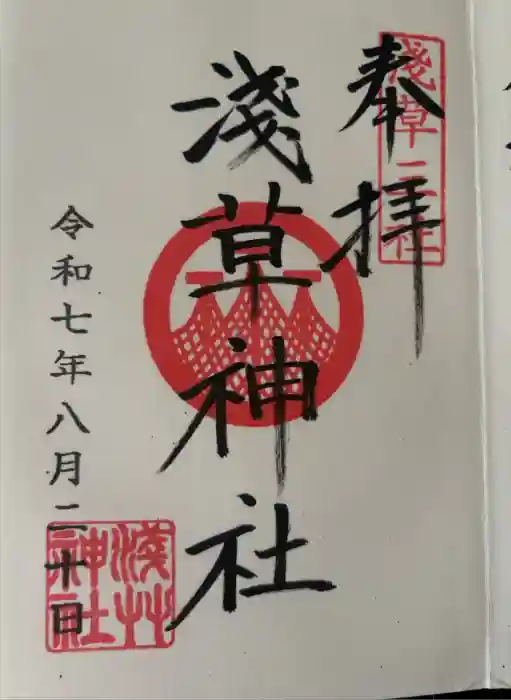 奉拝
淺草三社
淺草神社
令和七年八月二十日
淺草神社